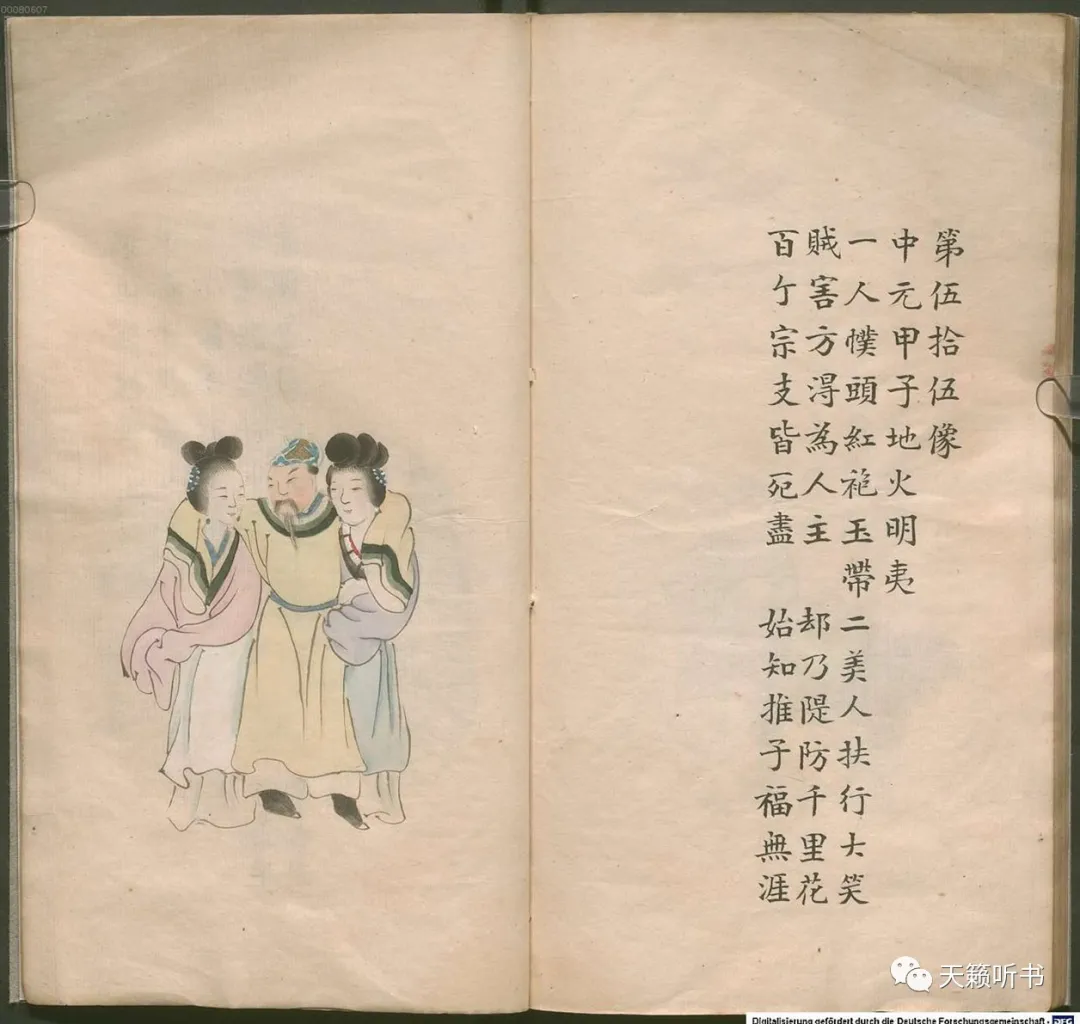 00080607
第伍拾伍像
中元甲子地火明夷
一人幞頭紅袍玉帶 二美人扶行大笑
賊害方淂為人主 却乃隄防千里花
百亇宗支皆死盡 始知推子福無涯
天籁听书
Digitalisierung gefördert durch die Deutsche Forschungsgemeinschaft - DFG